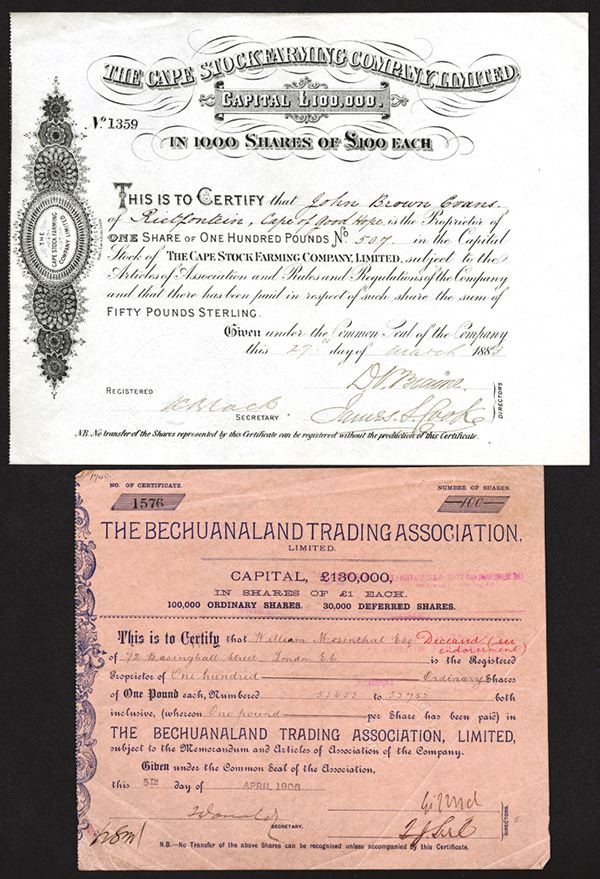 THE CAPE STOCK FARMING COMPANY, LIMITED.
CAPITAL £100,000.
No. 1359
IN 1000 SHARES OF £100 EACH
THIS IS TO CERTIFY that John Brown Evans
of Rietfontein, Cape of Good Hope, is the Proprietor of
ONE SHARE OF ONE HUNDRED POUNDS No. 507 in the Capital
Stock of THE CAPE STOCK FARMING COMPANY, LIMITED, subject to the
Articles of Association and Rules and Regulations of the Company
and that there has been paid in respect of such share the sum of
FIFTY POUNDS STERLING.
Given under the Common Seal of the Company
this 27 day of March 1883
THE CAPE STOCK FARMING COMPANY LIMITED
REGISTERED
SECRETARY.
James S Cook
DIRECTORS
NB. No transfer of the Shares represented by this Certificate can be registered without the production of this Certificate.
NO. OF CERTIFICATE.
1576
NUMBER OF SHARES.
100
THE BECHUANALAND TRADING ASSOCIATION,
LIMITED.
CAPITAL, £130,000,
IN SHARES OF £1 EACH.
100,000 ORDINARY SHARES. 30,000 DEFERRED SHARES.
This is to Certify that William Mosenthal Esq Deceased (see endorsement)
of 72 Basinghall Street, London E.C. is the Registered
Proprietor of One hundred Ordinary Shares
of One Pound each, Numbered 52653 to 52752 both
inclusive, (whereon One pound per Share has been paid) in
THE BECHUANALAND TRADING ASSOCIATION, LIMITED,
subject to the Memorandum and Articles of Association of the Company.
Given under the Common Seal of the Association,
this 5TH day of APRIL 1906
SECRETARY.
DIRECTORS.
N.B.—No Transfer of the above Shares can be recognised unless accompanied by this Certificate.